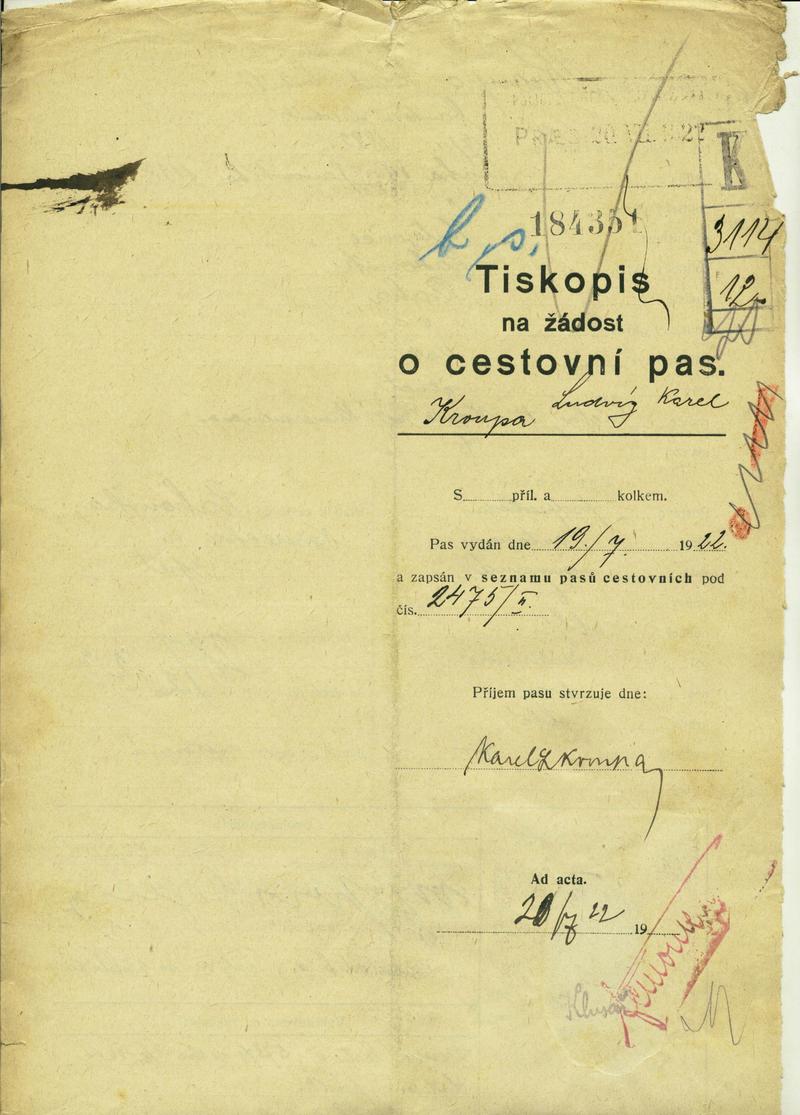 K
184351
3114
12
b. s.
Tiskopis
na žádost
o cestovní pas.
Kroupa Ludvig Karel
S........příl. a............kolkem.
Pas vydán dne 19./7. 1922.
a zapsán v seznamu pasů cestovních pod
čís. 2475/II.
Příjem pasu stvrzuje dne:
Karel L Kroupa
Ad acta.
20/7 22 19